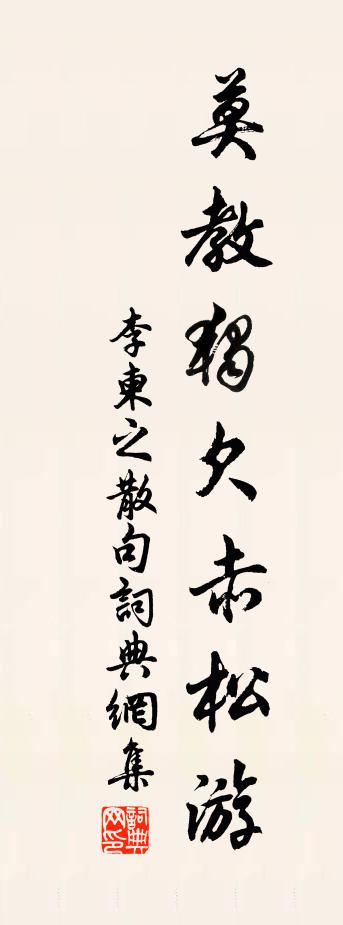 莫教獨欠赤松游
李東之散句詞典網集
詞典
网印